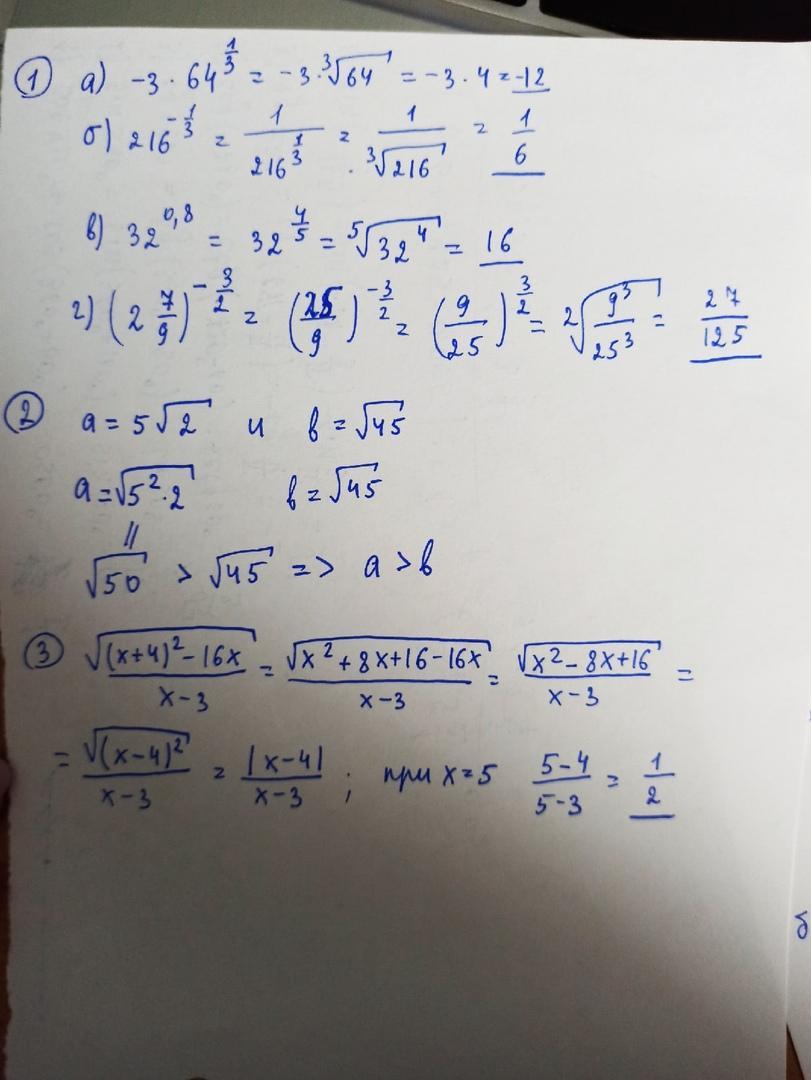 ① а) -3 · 64^{1/3} = -3 · ∛64 = -3 · 4 = -12
б) 216^{-1/3} = 1/216^{1/3} = 1/∛216 = 1/6
в) 32^{0,8} = 32^{4/5} = ⁵√(32⁴) = 16
г) (2 7/9)^{-3/2} = (25/9)^{-3/2} = (9/25)^{3/2} = ²√(9³/25³) = 27/125
② a = 5√2 и b = √45
a = √(5² · 2) b = √45
||
√50 > √45 => a > b
③ √((x+4)² - 16x)/(x-3) = √(x² + 8x + 16 - 16x)/(x-3) = √(x² - 8x + 16)/(x-3) =
= √((x-4)²)/(x-3) = |x-4|/(x-3) ; при x = 5 (5-4)/(5-3) = 1/2
б